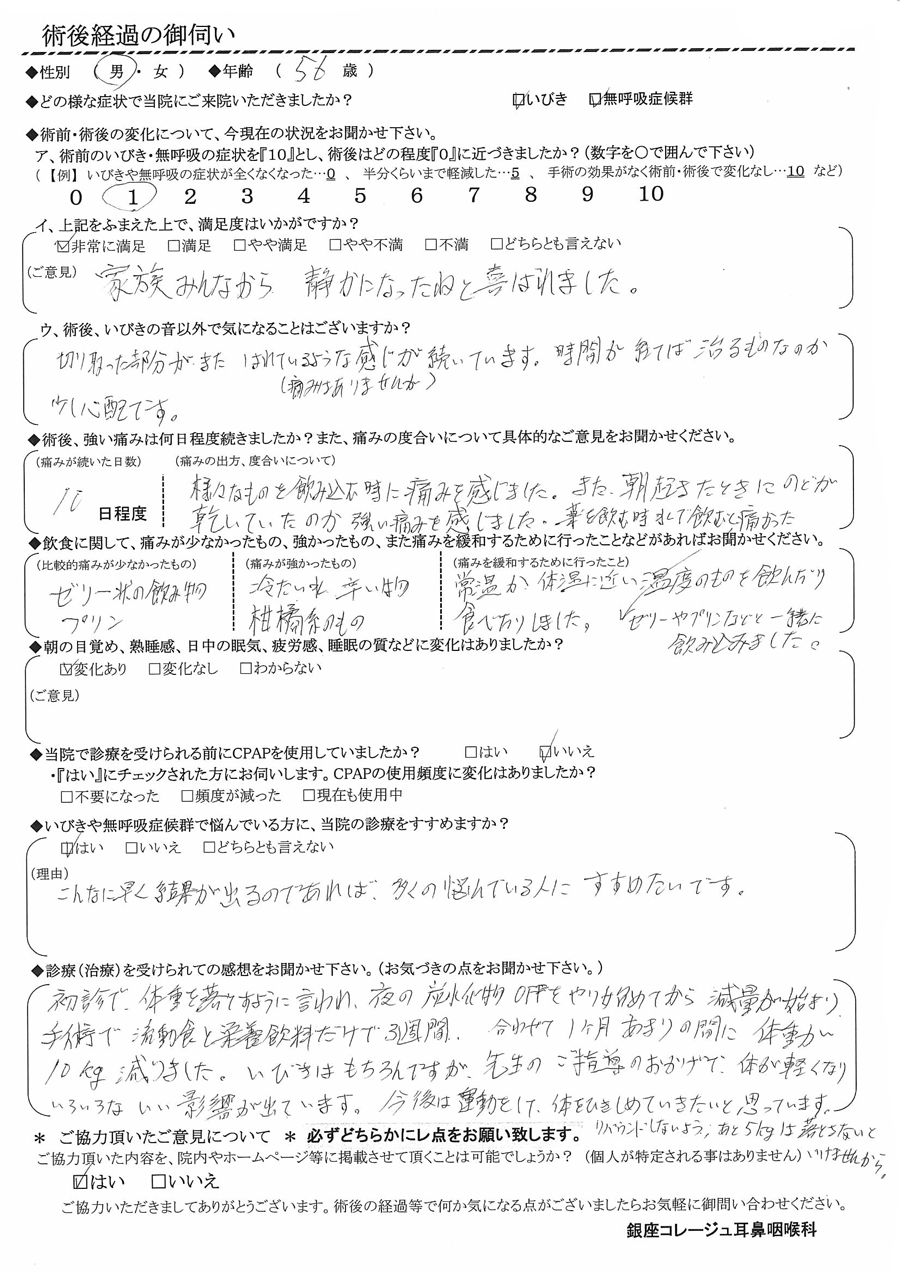 術後経過の御伺い
◆性別 （ 男 ・ 女 ） ◆年齢 （ 56 歳 ）
◆どの様な症状で当院にご来院いただきましたか？ ☑いびき ☑無呼吸症候群
◆術前・術後の変化について、今現在の状況をお聞かせ下さい。
ア、術前のいびき・無呼吸の症状を『10』とし、術後はどの程度『0』に近づきましたか？（数字を〇で囲んで下さい）
（ 【例】 いびきや無呼吸の症状が全くなくなった…0 、 半分くらいまで軽減した…5 、 手術の効果がなく術前・術後で変化なし…10 など）
0 1 2 3 4 5 6 7 8 9 10
イ、上記をふまえた上で、満足度はいかがですか？
☑非常に満足 □満足 □やや満足 □やや不満 □不満 □どちらとも言えない
（ご意見） 家族みんなから 静かになったねと喜ばれました。
ウ、術後、いびきの音以外で気になることはございますか？
切り取った部分がまだ はれているような感じが続いています。時間が経てば治るものなのか
（痛みはありませんが）
少し心配です。
◆術後、強い痛みは何日程度続きましたか？また、痛みの度合いについて具体的なご意見をお聞かせください。
（痛みが続いた日数） （痛みの出方、度合いについて）
10 日程度 様々なものを飲み込む時に痛みを感じました。また、朝起きたときにのどが
乾いていたのか強い痛みを感じました。薬を飲む時水で飲むと痛かった
◆飲食に関して、痛みが少なかったもの、強かったもの、また痛みを緩和するために行ったことなどがあればお聞かせください。
（比較的痛みが少なかったもの） （痛みが強かったもの） （痛みを緩和するために行ったこと）
ゼリー状の飲み物 冷たい水 辛い物 常温か、体温に近い温度のものを飲んだり
プリン 柑橘系のもの 食べたりしました。 ゼリーやプリンなどと一緒に
飲み込みました。
◆朝の目覚め、熟睡感、日中の眠気、疲労感、睡眠の質などに変化はありましたか？
☑変化あり □変化なし □わからない
（ご意見）
◆当院で診療を受けられる前にCPAPを使用していましたか？ □はい ☑いいえ
・『はい』にチェックされた方にお伺いします。CPAPの使用頻度に変化はありましたか？
□不要になった □頻度が減った □現在も使用中
◆いびきや無呼吸症候群で悩んでいる方に、当院の診療をすすめますか？
☑はい □いいえ □どちらとも言えない
（理由）
こんなに早く結果が出るのであれば、多くの悩んでいる人に すすめたいです。
◆診療（治療）を受けられての感想をお聞かせ下さい。（お気づきの点をお聞かせ下さい。）
初診で、体重を落とすように言われ、夜の炭水化物OFFをやり始めてから 減量が始まり、
手術で流動食と栄養飲料だけで3週間、合わせて1ヶ月あまりの間に 体重が
10kg減りました。いびきはもちろんですが、先生のご指導のおかげで、体が軽くなり
いろいろないい影響が出ています。今後は運動をして、体をひきしめていきたいと思っています。
＊ ご協力頂いたご意見について ＊ 必ずどちらかにレ点をお願い致します。 リバウンドしないよう、あと5kgは落とさないと
ご協力頂いた内容を、院内やホームページ等に掲載させて頂くことは可能でしょうか？ （個人が特定される事はありません） いけませんから。
☑はい □いいえ
ご協力いただきましてありがとうございます。術後の経過等で何か気になる点がございましたらお気軽に御問い合わせください。
銀座コレージュ耳鼻咽喉科